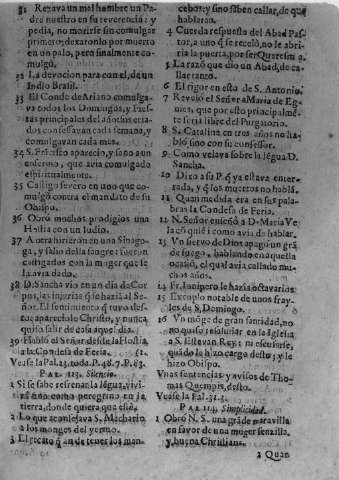 31 Rezava un mal hombre un Pa-
dre nuestro en su reverencia; y
pedia, no morirse sin comulgar
primero; dexaronlo por muerto
en un palo, pero finalmente co-
mulgò.
32 La devocion para con el, de un
Indio Brasil.
33 El Conde de Ariano comulga-
va todos los Domingos, y Fies-
tas principales del año: sus cria-
dos confessavan cada semana, y
comulgavan cada mes.
34 S. Francisco apareciò, y sanò a un
enfermo, que avia comulgado
espiritualmente.
35 Castigo severo en uno que co-
mulgò contra el mandato de su
Obispo.
36 Obrò muchos prodigios una
Hostia con un Iudio.
37 A otra hirieron en una Sinago-
ga, y saliò della sangre: fueron
castigados con la muger que se
la avia dado.
38 D. Sancha viò en un dia de Cor-
pus, las injurias que hazia al Se-
ñor. El sentimiento que tuvo des-
to; apareciole Christo, y nunca
quiso salir de casa aquel dia.
39 Hablò el Señor desde la Hostia
a la Condesa de Feria.
Vease la Pal. 23. toda. P. 48. 7. P. 63.
PAL. 113. Silencio.
1 Si se sabe refrenar la lẽgua, vivi-
rà uno como peregrino en la
tierra, donde quiera que estè.
2 Lo que aconsejava S. Machario
a los monges del yermo.
3 El
de tener los man-
cebos; y sino saben callar, de que
hablaran.
4 Cuerda respuesta del Abad Pas-
tor, a uno que se recelò, no le abri-
ria la puerta, por ser Quaresma.
5 La razon que diò un Abad, de ca-
llar tanto.
6 El rigor en esto de S. Antonio.
7 Revelò el Señor a Maria de Eg-
nies, que por esto principalmẽ-
te seria libre del Purgatorio.
8 S. Catalina en tres años no ha-
blò, sino con su confessor.
9 Como velava sobre la lẽgua D.
Sancha.
10 Dixo a su P. q̃ ya estava enter-
rada, y q̃ los muertos no hablã.
11 Quan medida era en sus pala-
bras la Condesa de Feria.
12 N. Señor enseñò a D. Maria Ve-
la cõ quiẽ i como avia de hablar.
13 Vn siervo de Dios apagò un grã
de fuego, hablando en aquella
ocasiõ, el qual avia callado mu-
chos años.
14 Fr. Iunipero lo hazia octavarios
15 Exemplo notable de unos fray-
les de S. Domingo.
16 Vn mõge de gran santidad, no
no quiso
en la Iglesia
a S. Estevan Rey; ni escusarse,
quãdo le hizo cargo desto; y le
hizo Obispo.
Vnas sentencias y avisos de Tho-
mas Quempis, desto.
Vease la Pal. 31. 3.
PAL. 114. Simplicidad.
1 Obrò N. S. una grãde maravilla
en favor de una muger senzilla,
y buena Christiana.
2 Quan